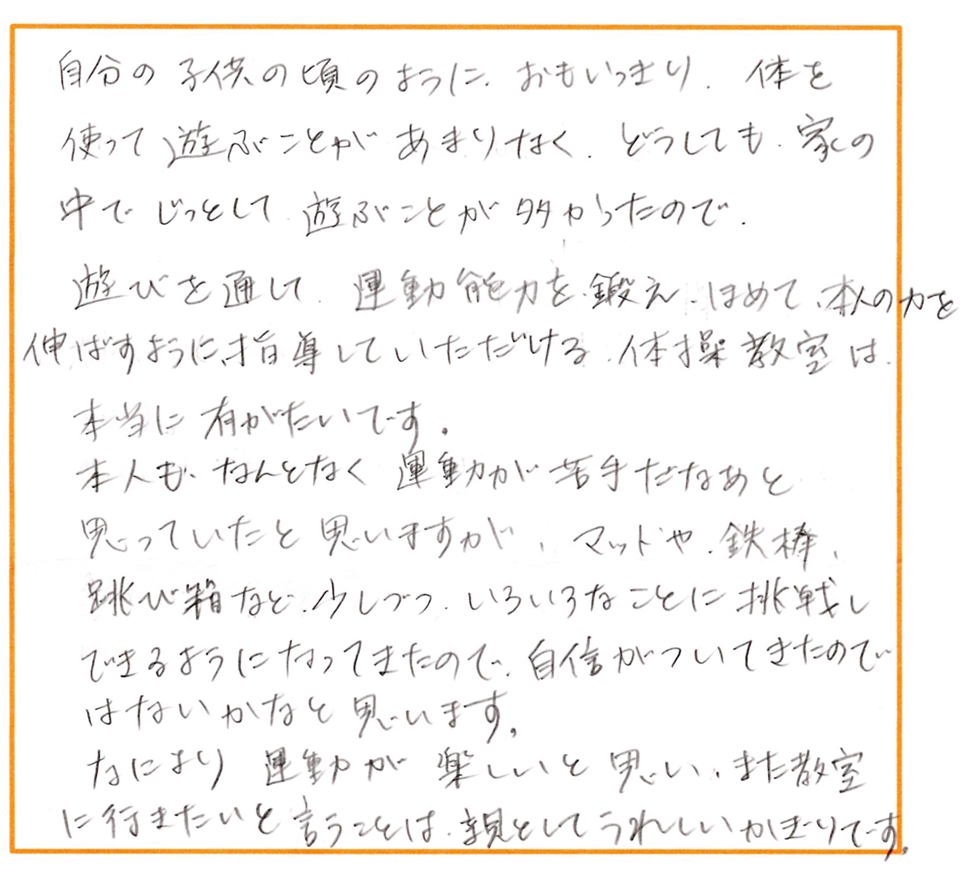 自分の子供の頃のように、おもいっきり、体を
使って遊ぶことがあまりなく、どうしても、家の
中でじっとして遊ぶことが多かったので、
遊びを通して、運動能力を鍛え、ほめて、本人の力を
伸ばすように、指導していただける、体操教室は、
本当に有がたいです。
本人も、なんとなく運動が苦手だなあと
思っていたと思いますが、マットや、鉄棒、
跳び箱など、少しづつ、いろいろなことに挑戦し
できるようになってきたので、自信がついてきたので
はないかなと思います。
なにより運動が楽しいと思い、また教室
に行きたいと言うことは、親としてうれしいかぎりです。